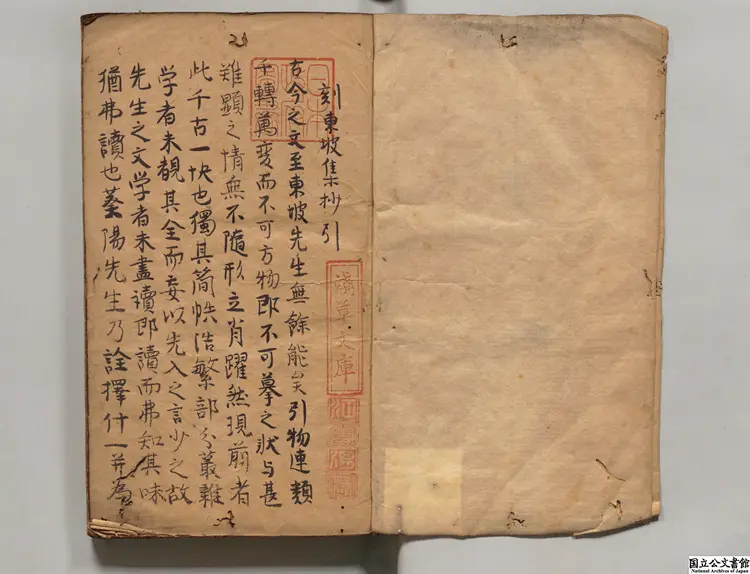 刻東坡集抄引
古今之文至東坡先生無餘能矣引物連類
千轉萬変而不可方物即不可摹之狀与甚
难顯之情無不隨形立肖躍然現前者
此千古一快也獨其简帙浩繁部分叢雜
学者未覩其全而妄以先入之言少之故
先生之文学者未盡讀即讀而弗知其味
猶弗讀也蓋陽先生乃詮擇什一并為
淺草文庫
国立公文書館
National Archives of Japan